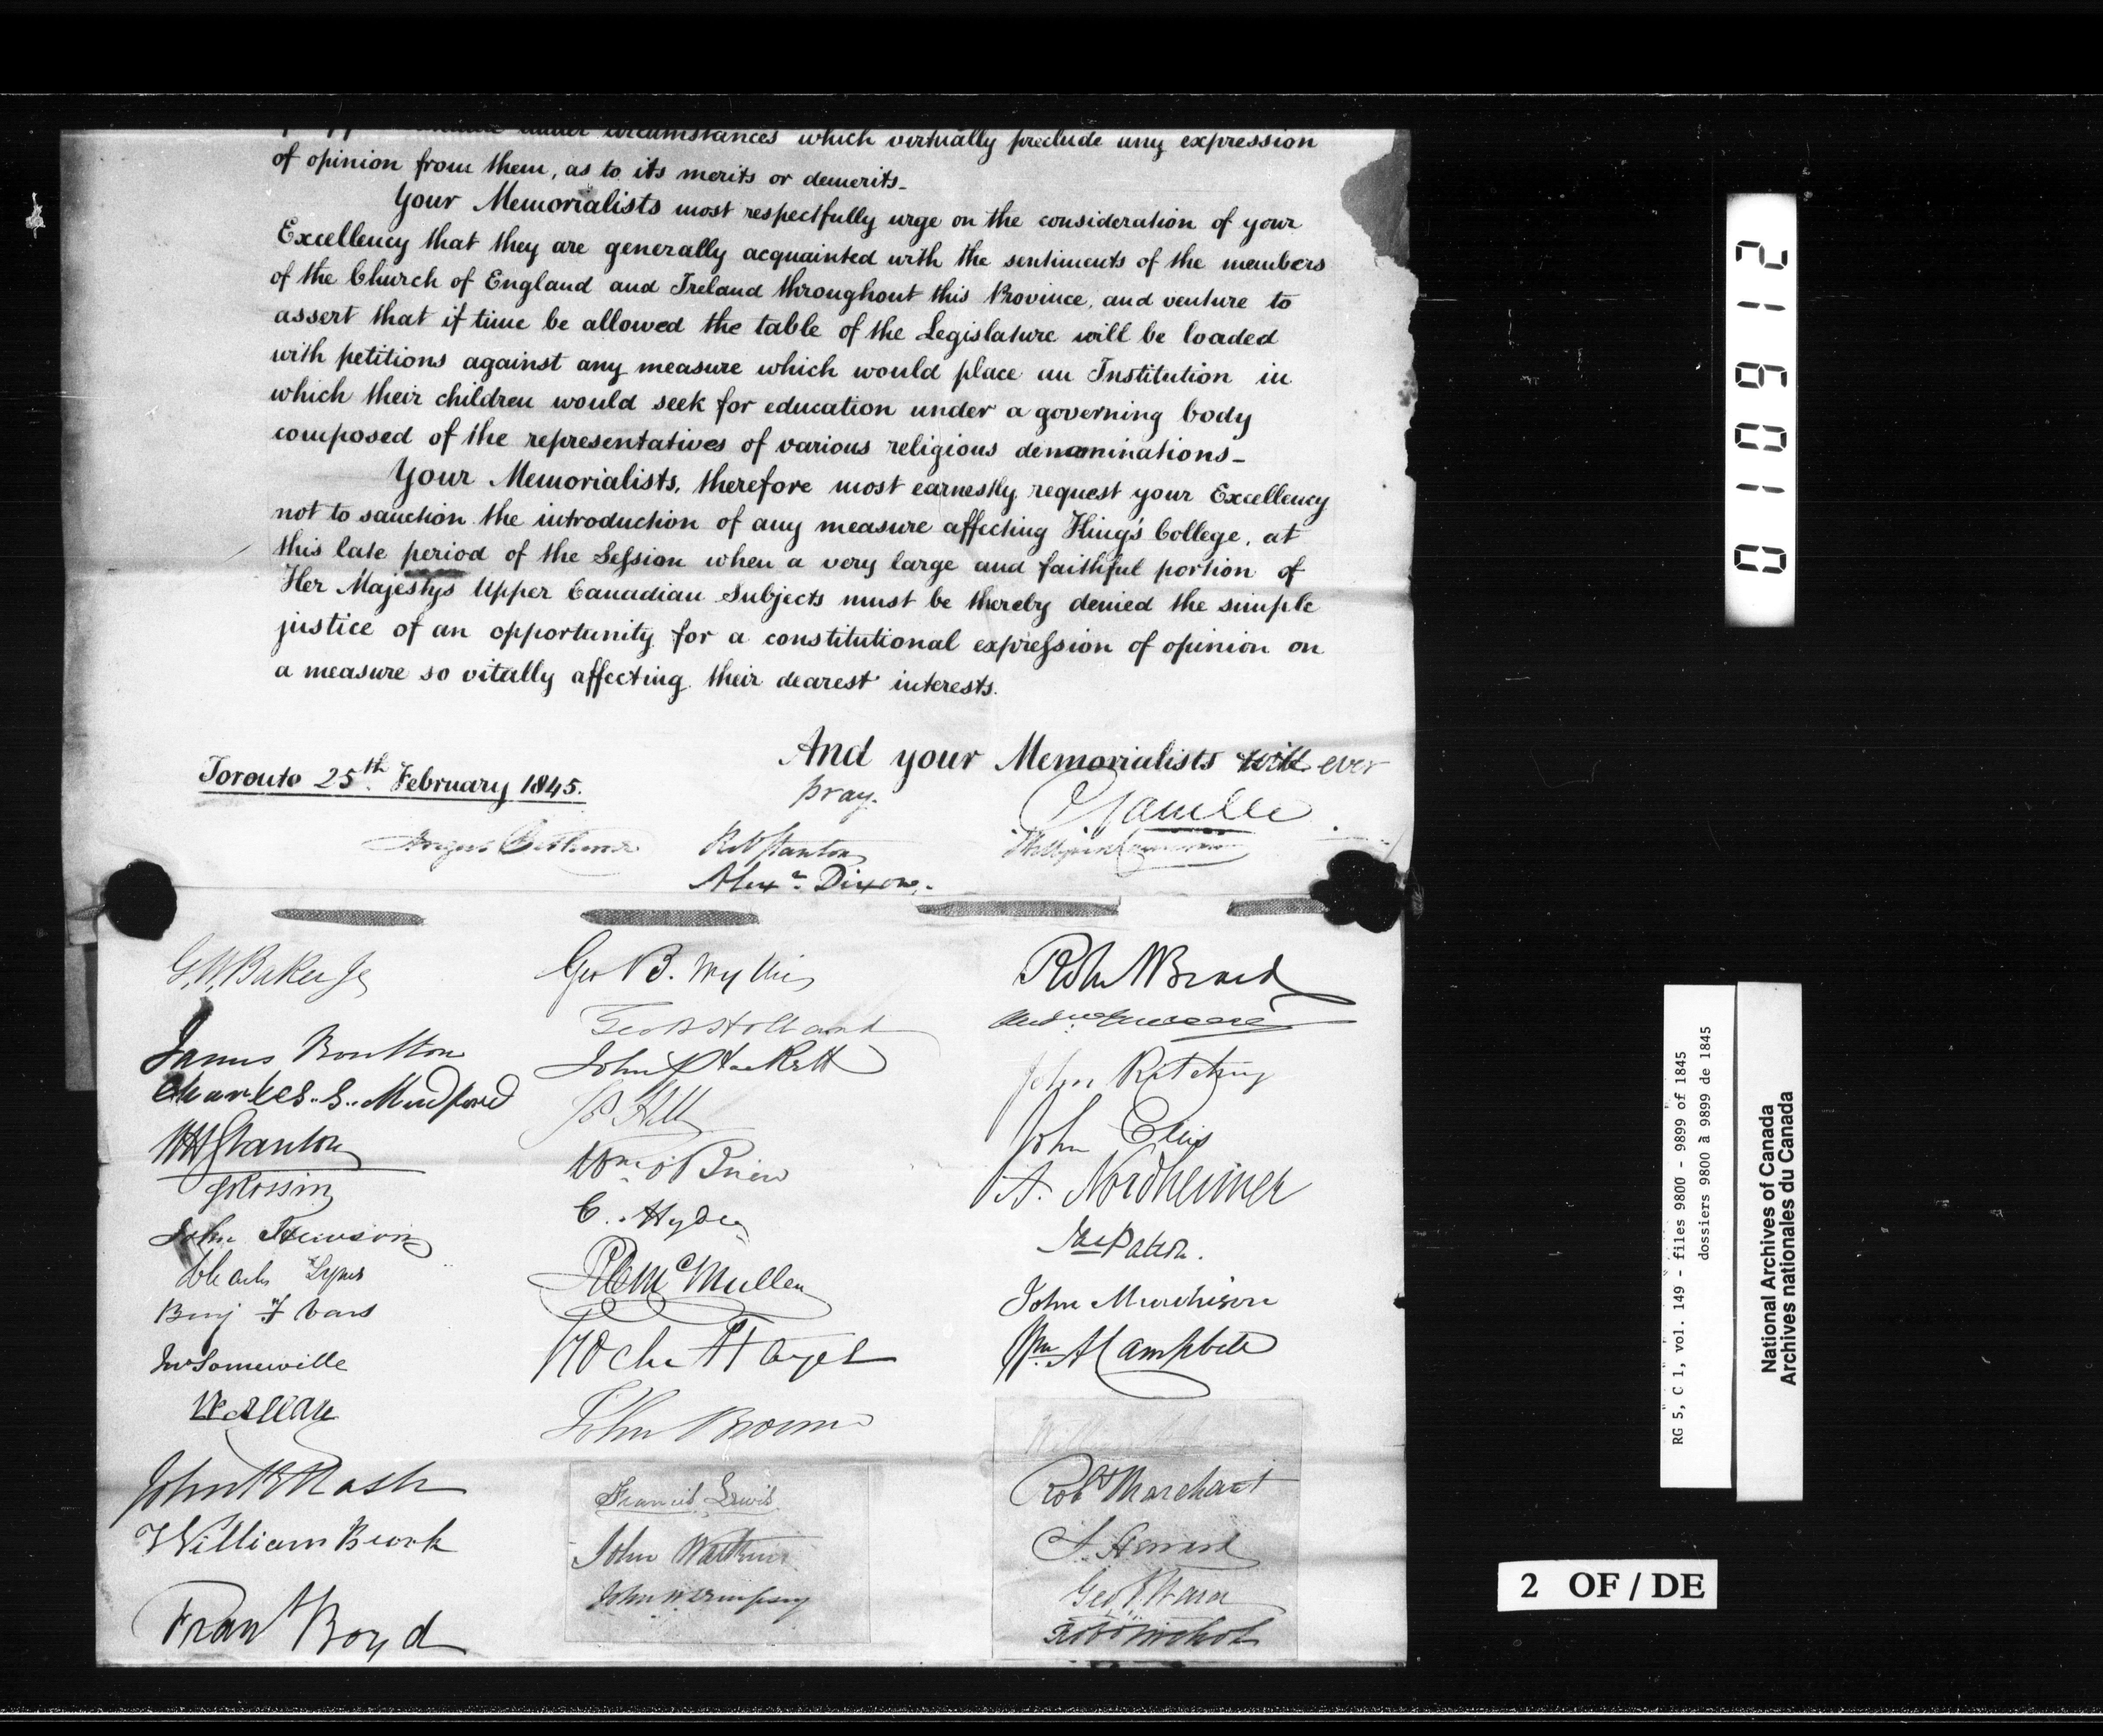 under circumstances which virtually preclude any expression
of opinion from them, as to its merits or demerits_
Your Memorialists most respectfully urge on the consideration of your
Excellency that they are generally acquainted with the sentiments of the members
of the Church of England and Ireland throughout this Province, and venture to
assert that if time be allowed the table of the Legislature will be loaded
with petitions against any measure which would place an Institution in
which their children would seek for education under a governing body
composed of the representatives of various religious denominations_
Your Memorialists, therefore most earnestly request your Excellency
not to sanction the introduction of any measure affecting King's College, at
this late period of the Session when a very large and faithful portion of
Her Majestys Upper Canadian Subjects must be thereby denied the simple
justice of an opportunity for a constitutional expression of opinion on
a measure so vitally affecting their dearest interests.
And your Memorialists will ever
pray.
Toronto 25th February 1845.
Angus Bethune
Rob Stanton
Alexr Dixon.
G. W. Baker Jr
James Boulton
Charles S. Mudford
WH Stanton
John
Charles
Benj
Jno Somerville
John Nash
William Brook
Fran Boyd
Geo B. Wyllie
Geo B Holland
John Hackett
Hill
Wm O'Brien
C. Hyde
McMullen
Roche Hayes
John Browne
Francis Lewis
John Watkins
John W Dempsey
John Ritchey
John Ellis
A. Nordheimer
Jas Paton.
John Murchison
Wm A Campbell
Robt Marchant
Geo
010912
RG 5, C 1, vol. 149 - files 9800 - 9899 of 1845
dossiers 9800 à 9899 de 1845
National Archives of Canada
Archives nationales du Canada
2 OF / DE